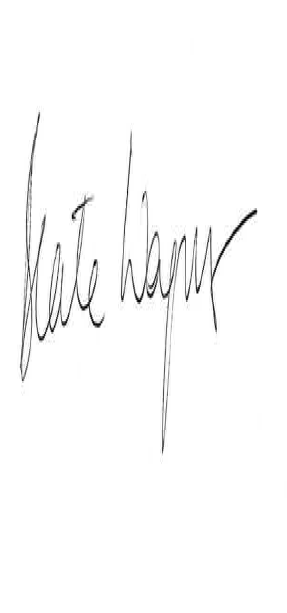 Kate Wagner